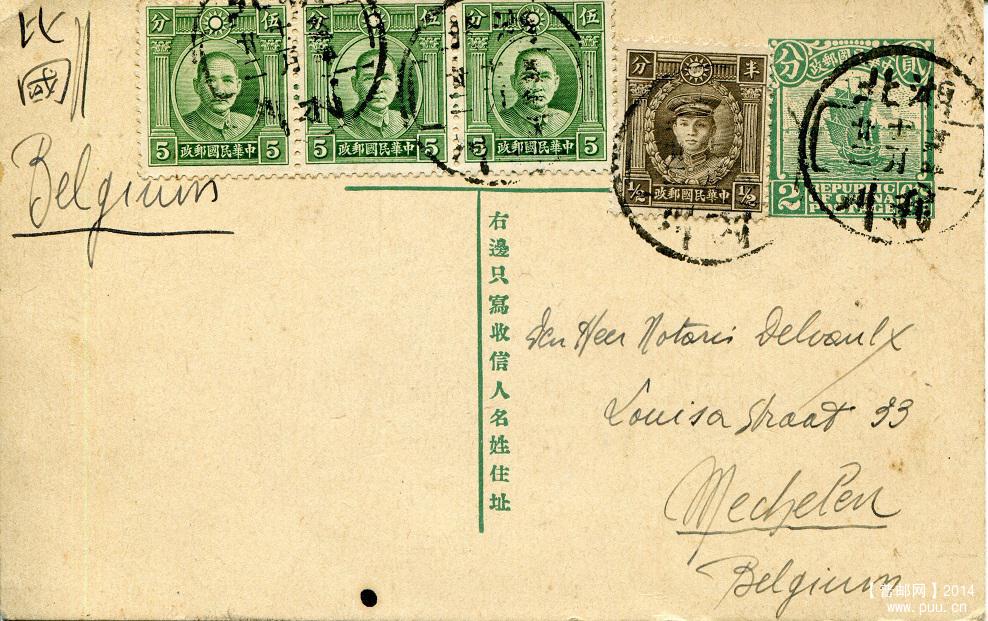 比國
Belgium
分 伍
5 中華民國郵政 5
分 伍
5 中華民國郵政 5
分 伍
5 中華民國郵政 5
分 半
½ 政郵國民華中 ½
分 貳
2 REPUBLIC OF CHINA POSTAGE
右邊只寫收信人名姓住址
Den Heer Notaris Delvaulx
Louisa Straat 33
Mechelen
Belgium
【普邮网】2014
www.puu.cn